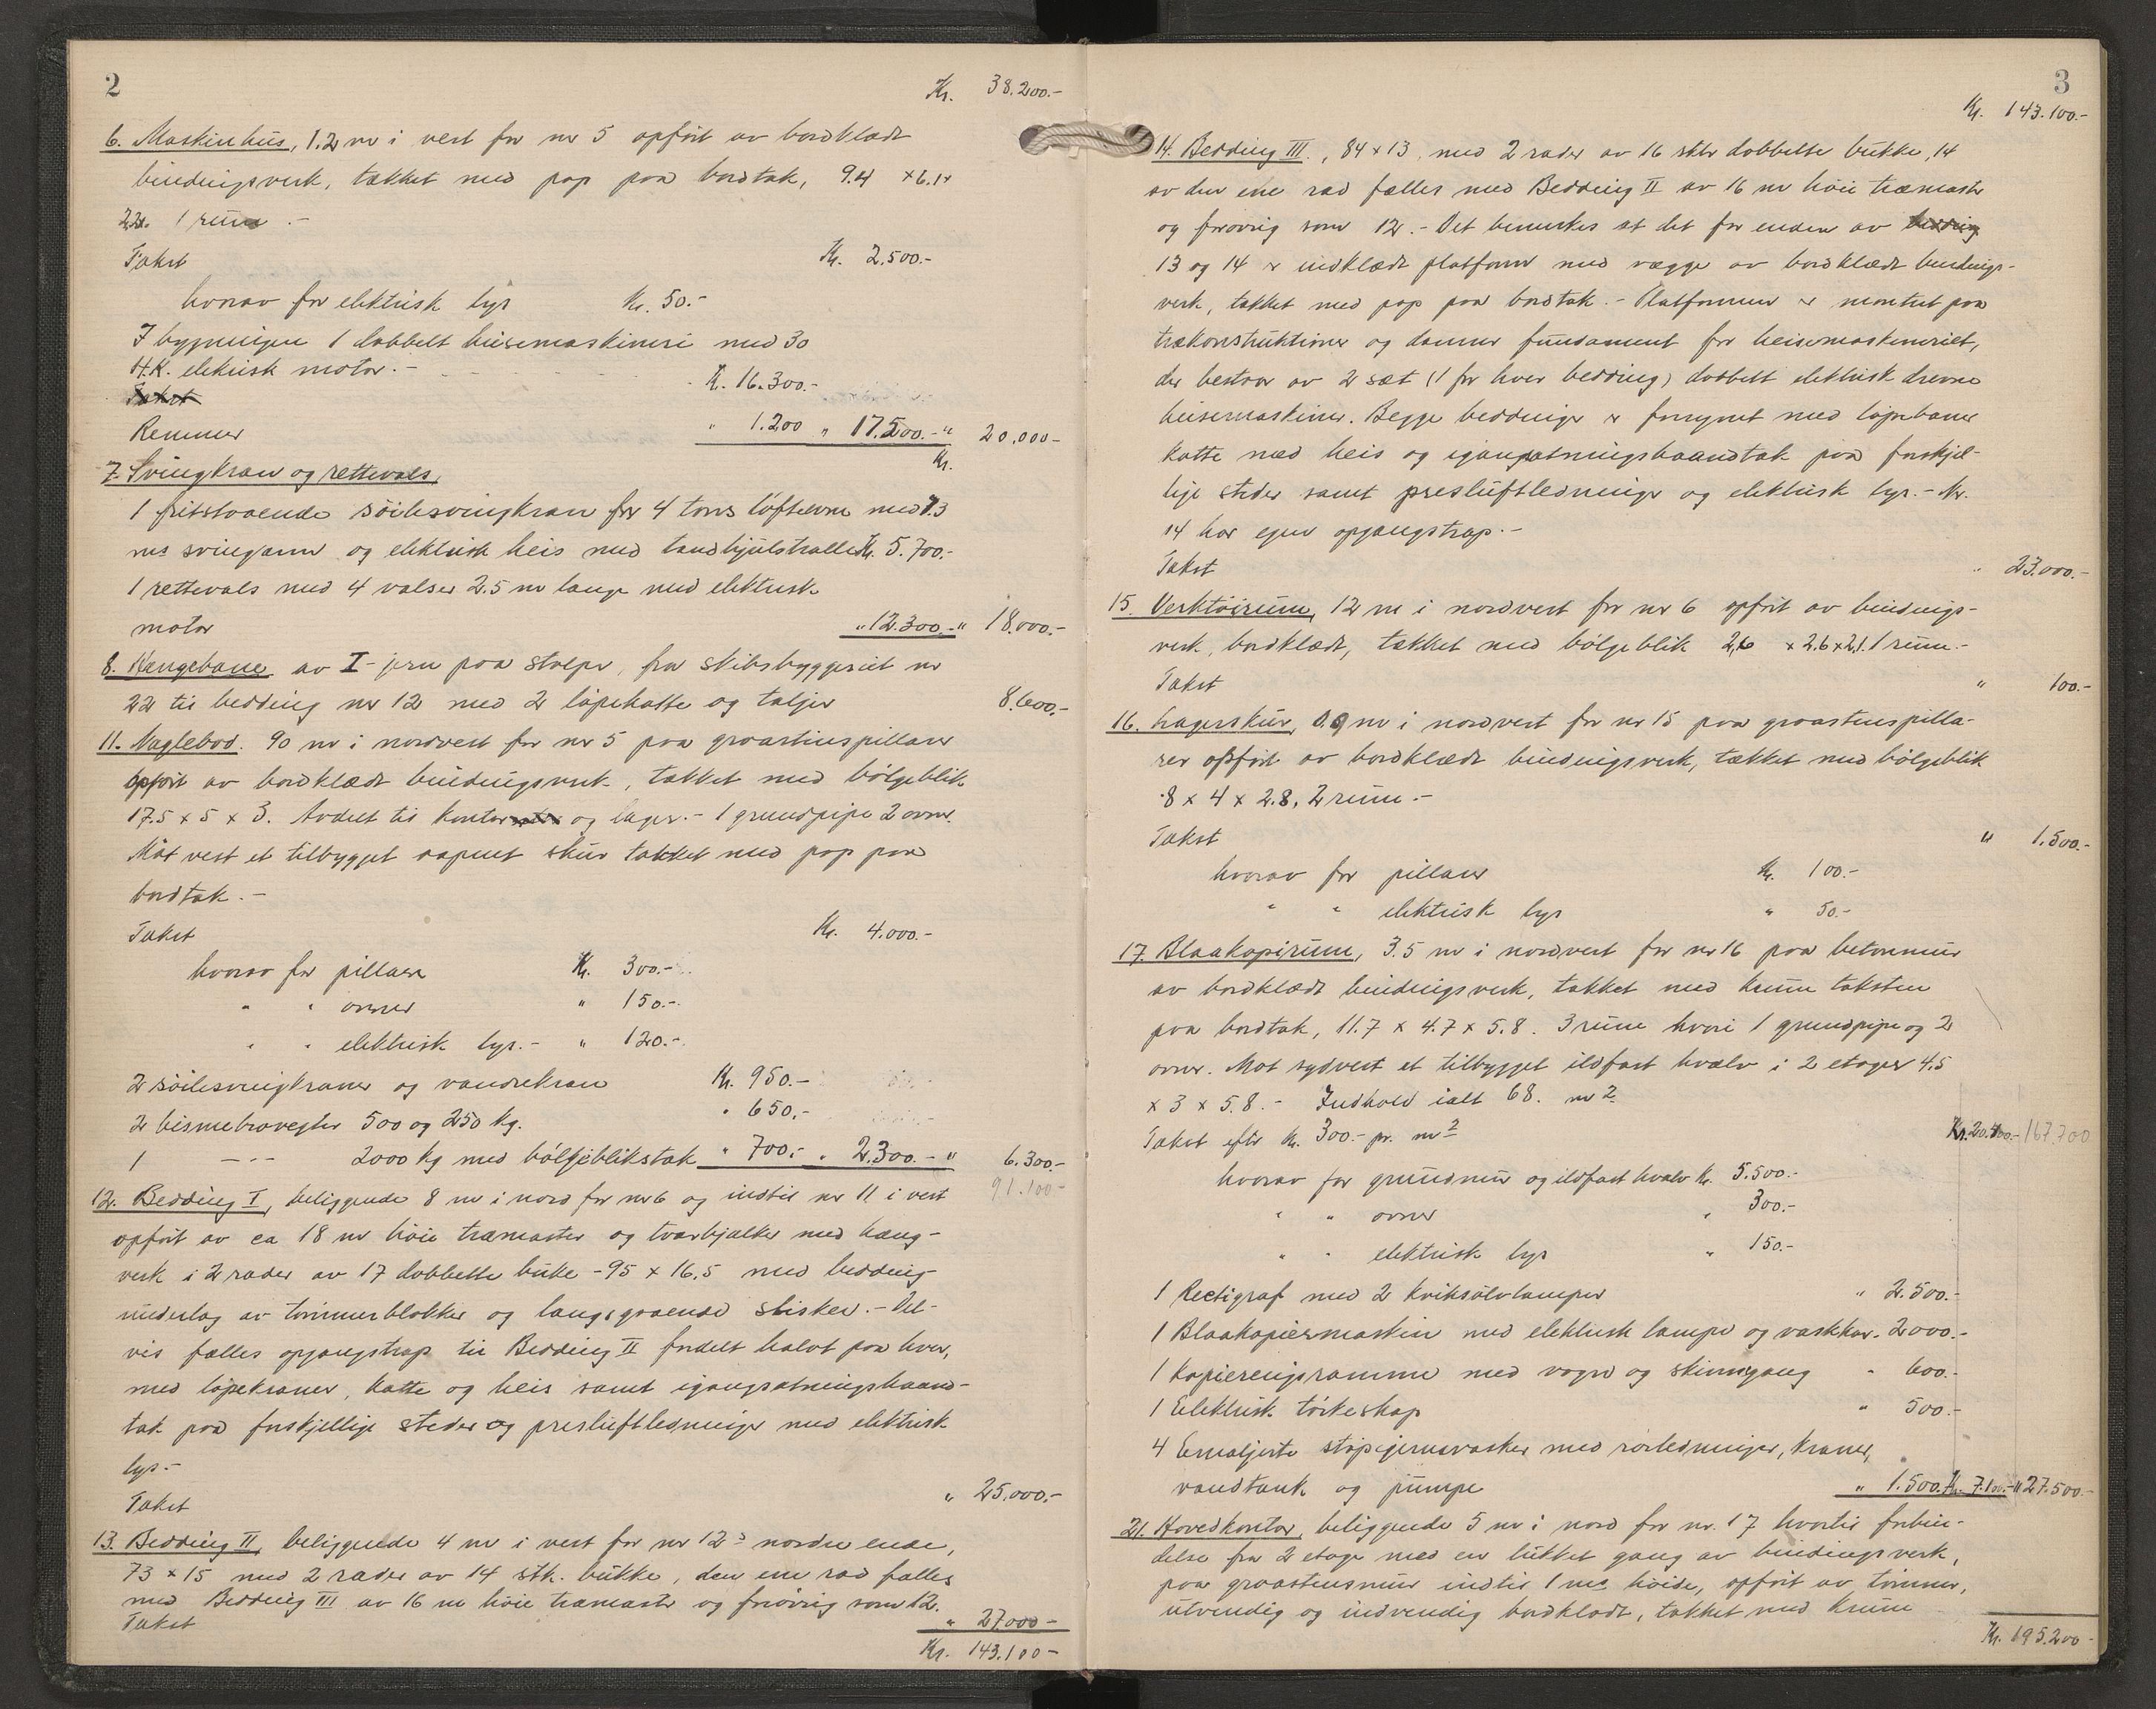 2
Kr. 38.200.-
6. Maskinhus, 1.2 m i vest for nr 5 opført av bordklædt
bindingsverk, tækket med pap paa bordtak, 9.4 × 6.1 ×
2.2. 1 rum .-
Takst Kr. 2.500.-
hvorav for elektrisk lys Kr. 50.-
I bygningen 1 dobbelt heisemaskineri med 30
H.K. elektrisk motor.- Kr. 16.300.-
Takst
Remmer " 1.200 " 17.500.- " 20.000-
Kr.
7. Svingkran og rettevals,
1 fritstaaende søilesvingkran for 4 tons løfteevne med 7.3
ms svingarm og elektrisk heis med tandhjulstralle Kr. 5.700.-
1 rettevals med 4 valser 2.5 m lange med elektrisk
motor " 12.300.- " 18.000.-
8. Hængebane av I-jern paa stolper, fra skibsbyggeriet nr
22 til bedding nr 12 med 2 løpekatte og taljer 8.600.-
11. Naglebod. 90 m i nordvest for nr 5 paa graastenspillarer
opført av bordklædt bindingsverk, tækket med bølgeblik
17.5 × 5 × 3. Avdelt til kontor og lager.- 1 grundpipe 2 ovner.
Mot vest et tilbygget aapent skur tækket med pap paa
bordtak.-
Takst Kr. 4.000.-
hvorav for pillarer Kr. 300.-
" " ovner " 150.-
" " elektrisk lys.- " 120.-
2 søilesvingkraner og vandrekran Kr. 950.-
2 bismebrovegter 500 og 250 kg. " 650.-
1 -"- 2000 kg med bølgeblikstak " 700.- " 2.300.- " 6.300.-
91.100-
12. Bedding I, beliggende 8 m i nord for nr 6 og indtil nr 11 i vest
opført av ca 18 m høie træmaster og tværbjælker med hæng-
verk i 2 rader av 17 dobbelte bukke - 95 × 16,5 med bedding
underlag av tømmerblokker og langsgaaende slisker.- Del-
vis fælles opgangstrap til Bedding II fordelt halvt paa hver,
med løpekraner, katte og heis samt igangsætningshaand-
tak paa forskjellige steder og presluftledninger med elektrisk
lys.-
Takst " 25.000.-
13. Bedding II, beliggende 4 m i vest for nr 12s nordre ende,
73 × 15 med 2 rader av 14 stk. bukke, den ene rad fælles
med Bedding III av 16 m høie træmaster og forøvrig som 12.
Takst " 27.000-
Kr. 143.100-
3
Kr. 143.100.-
14. Bedding III., 84 × 13, med 2 rader av 16 stkr dobbelte bukke, 14
av den ene rad fælles med Bedding II av 16 m høie træmaster
og forøvrig som 12.- Det bemerkes at det for enden av bedding
13 og 14 er indklædt platform med vægge av bordklædt bindings-
verk, tækket med pap paa bordtak.- Platformen er montert paa
trækonstruktioner og danner fundament for heisemaskineriet,
der bestaar av 2 sæt (1 for hver bedding) dobbelt elektrisk drevne
heisemaskiner. Begge beddinger er forsynet med løpebaner
katte med heis og igangsætningshaandtak paa forskjel-
lige steder samt presluftledninger og elektrisk lys.- Nr.
14 har egen opgangstrap.-
Takst " 23.000.-
15. Verktøirum, 12 m i nordvest for nr 6 opført av bindings-
verk, bordklædt, tækket med bølgeblik 2,6 × 2.6 × 2.1. 1 rum.-
Takst " 100.-
16. Lagerskur, 0.9 m i nordvest for nr 15 paa graastenspilla-
rer opført av bordklædt bindingsverk, tækket med bølgeblik
8 × 4 × 2.8, 2 rum.-
Takst " 1.500.-
hvorav for pillarer Kr. 100.-
" " elektrisk lys " 50.-
17. Blaakopirum, 3.5 m i nordvest for nr 16 paa betonmur
av bordklædt bindingsverk, tækket med krum taksten
paa bordtak, 11.7 × 4.7 × 5.8. 3 rum hvori 1 grundpipe og 2
ovner. Mot sydvest et tilbygget ildfast hvælv i 2 etager 4.5
× 3 × 5.8.- Indhold ialt 68. m2
Takst efter Kr. 300.- pr. m2 Kr. 20.400.- 167.700
hvorav for grundmur og ildfast hvælv Kr. 5.500.-
" " ovner " 300.-
" " elektrisk lys " 150.-
1 Rectigraf med 2 kviksølvlamper " 2.500.-
1 Blaakopiermaskin med elektrisk lampe og vaskkar. 2000.-
1 Kopieringsramme med vogn og skinnegang " 600.-
1 Elektrisk tørkeskap " 500.-
4 Emaljerte støpejernsvasker med rørledninger, kraner,
vandtank og pumpe " 1.500. Kr. 7.100.- " 27.500.-
21. Hovedkontor, beliggende 5 m i nord for nr. 17 hvortil forbin-
delse fra 2 etage med en lukket gang av bindingsverk,
paa graastensmur indtil 1 ms høide, opført av tømmer,
utvendig og indvendig bordklædt, tækket med krum
Kr. 195.200-